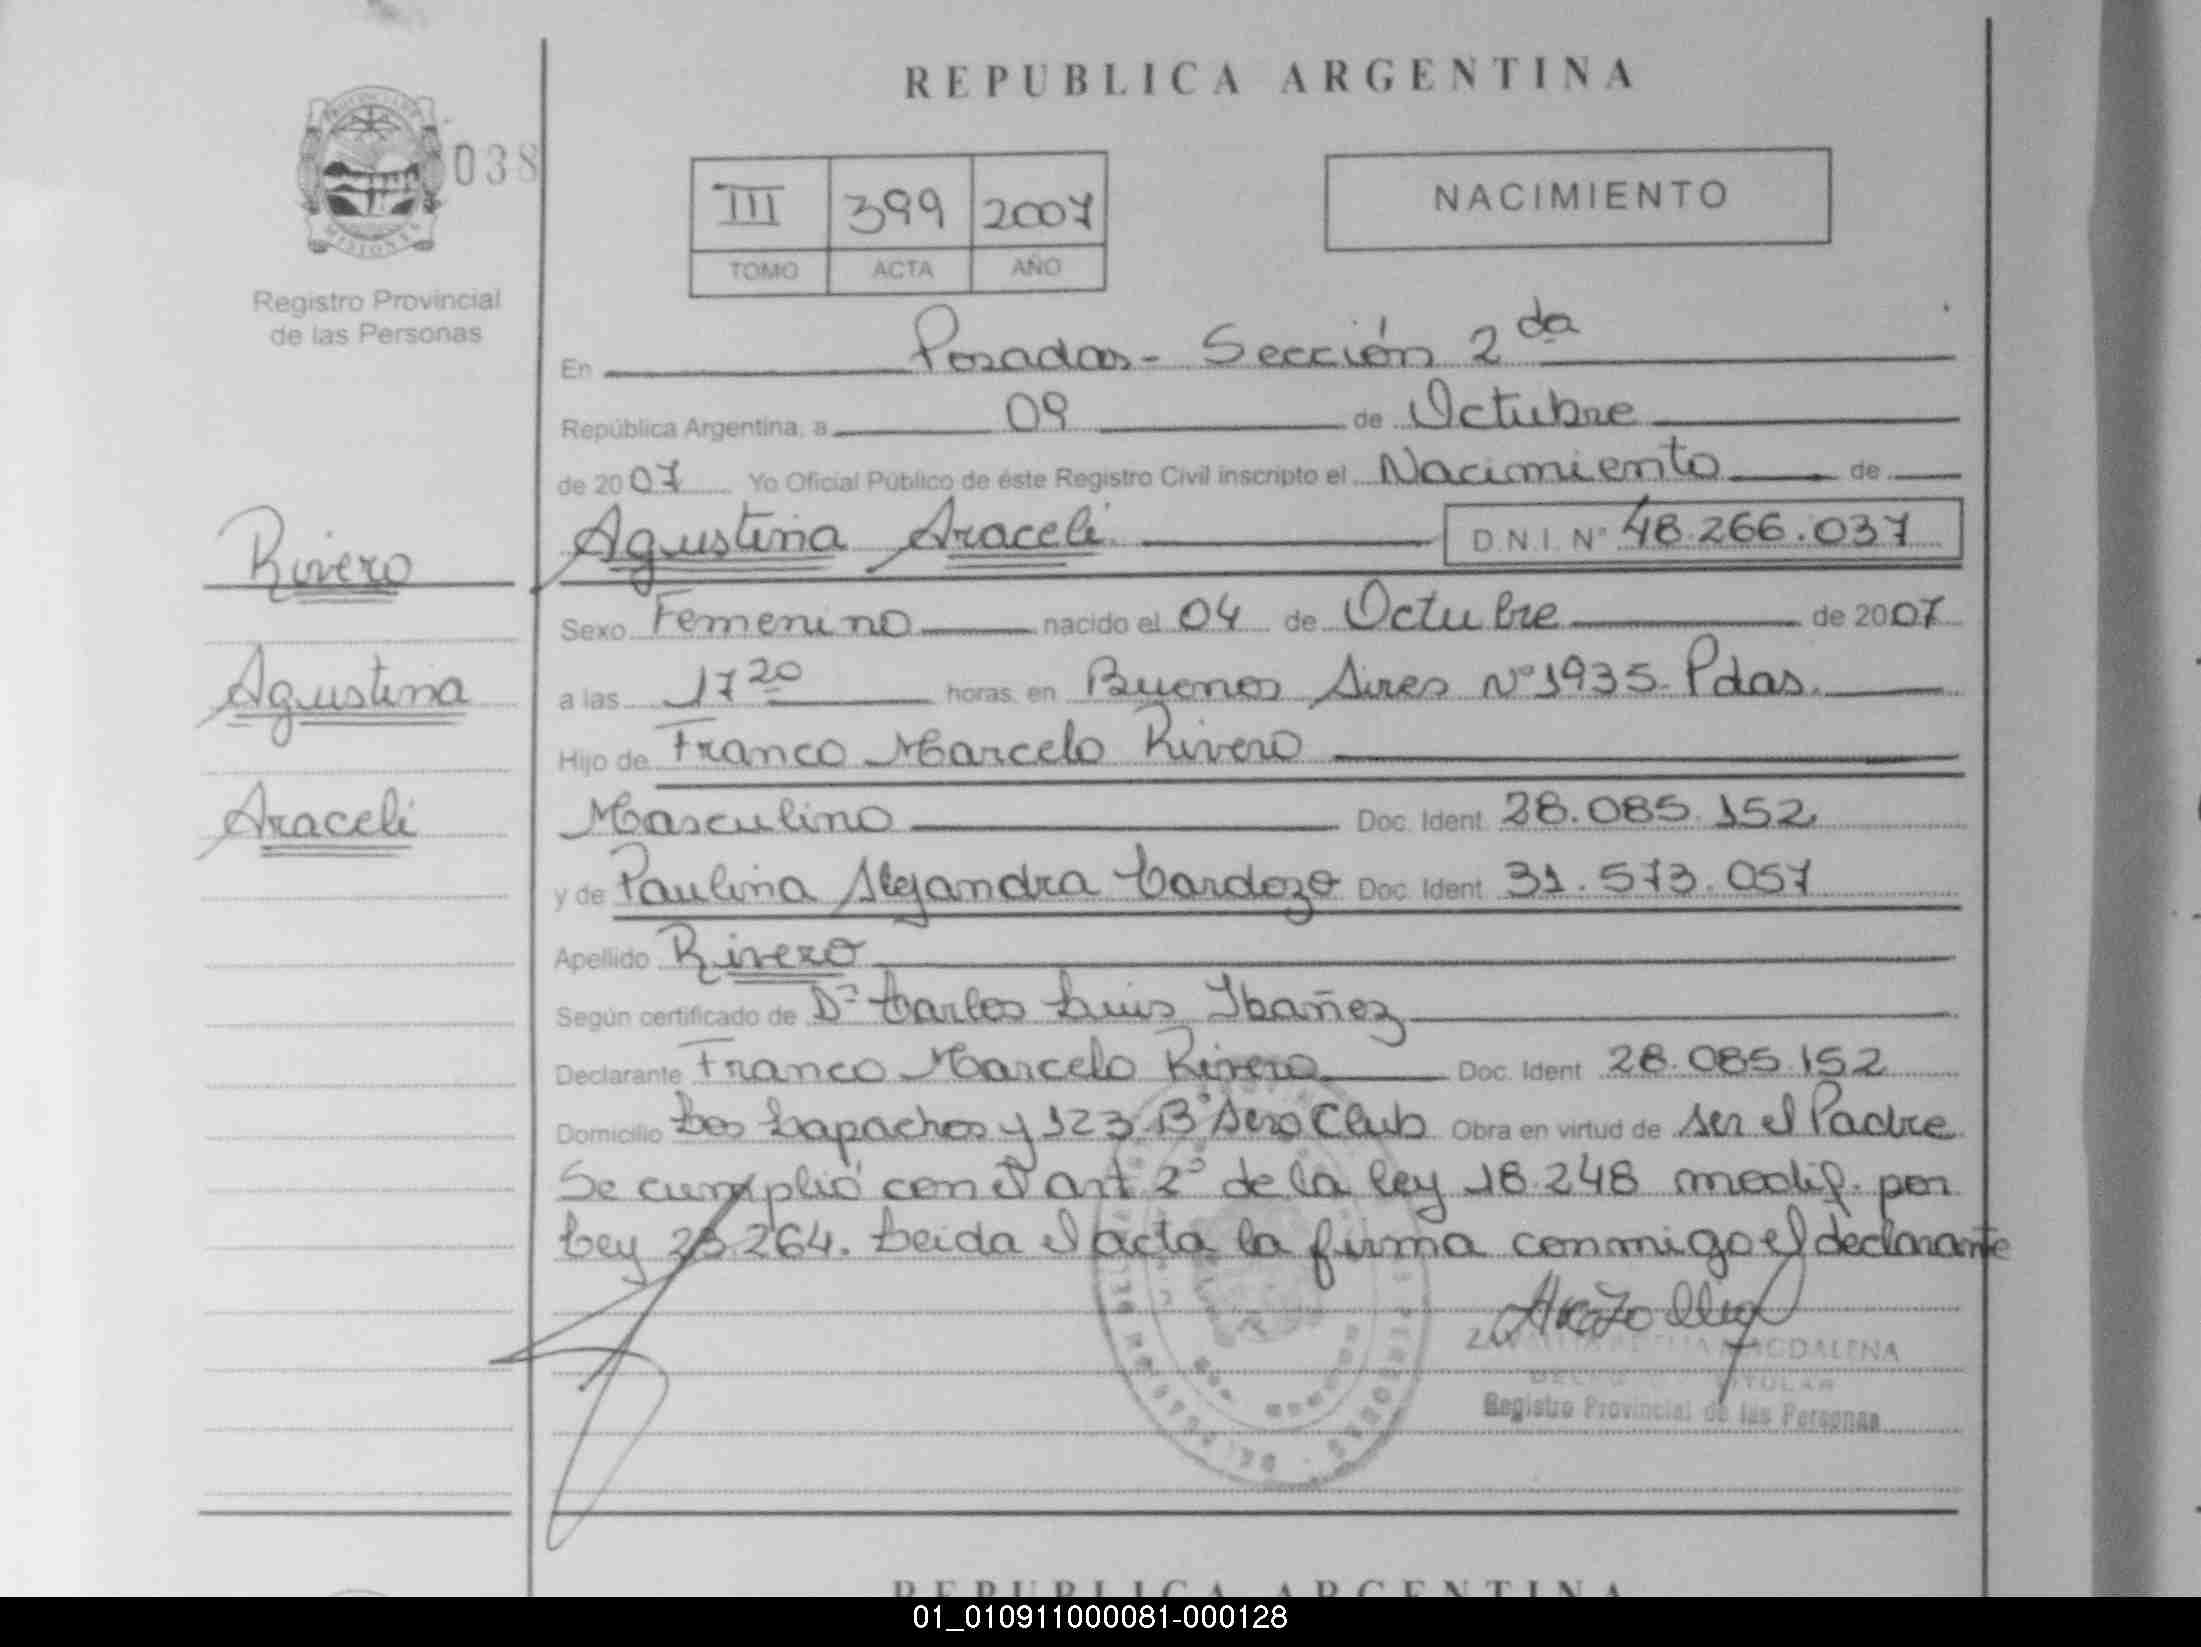 REPUBLICA ARGENTINA
PROVINCIA DE
MISIONES
038
Registro Provincial
de las Personas
III 399 2007
TOMO ACTA AÑO
NACIMIENTO
En Posadas - Sección 2da
República Argentina, a 09 de Octubre
de 2007 Yo Oficial Público de éste Registro Civil inscripto el Nacimiento de
Rivero
Agustina Araceli D.N.I. Nº 48.266.037
Sexo Femenino nacido el 04 de Octubre de 2007
Agustina
a las 17 20 horas, en Buenos Aires Nº 1935. Pdas.
Hijo de Franco Marcelo Rivero
Araceli
Masculino Doc. Ident. 28.085.152
y de Paulina Alejandra Cardozo Doc. Ident. 31.573.057
Apellido Rivero
Según certificado de Dr Carlos Luis Ibañez
Declarante Franco Marcelo Rivero Doc. Ident. 28.085.152
Domicilio Los Lapachos y 123 Bº Aero Club Obra en virtud de ser el Padre
Se cumplió con el art 2º de la ley 18.248 modif. por
Ley 26.264. Leida el acta la firma conmigo el declarante
MAGDALENA
TITULAR
Registro Provincial de las Personas
REPUBLICA ARGENTINA
01_010911000081-000128